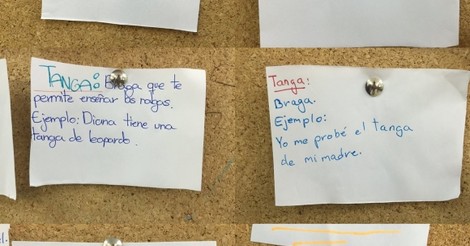 TANGA: Braga que te
permite enseñar las nalgas.
Ejemplo: Diana tiene una
tanga de leopardo.
Tanga:
Braga.
Ejemplo:
Yo me probé el tanga
de mi madre.